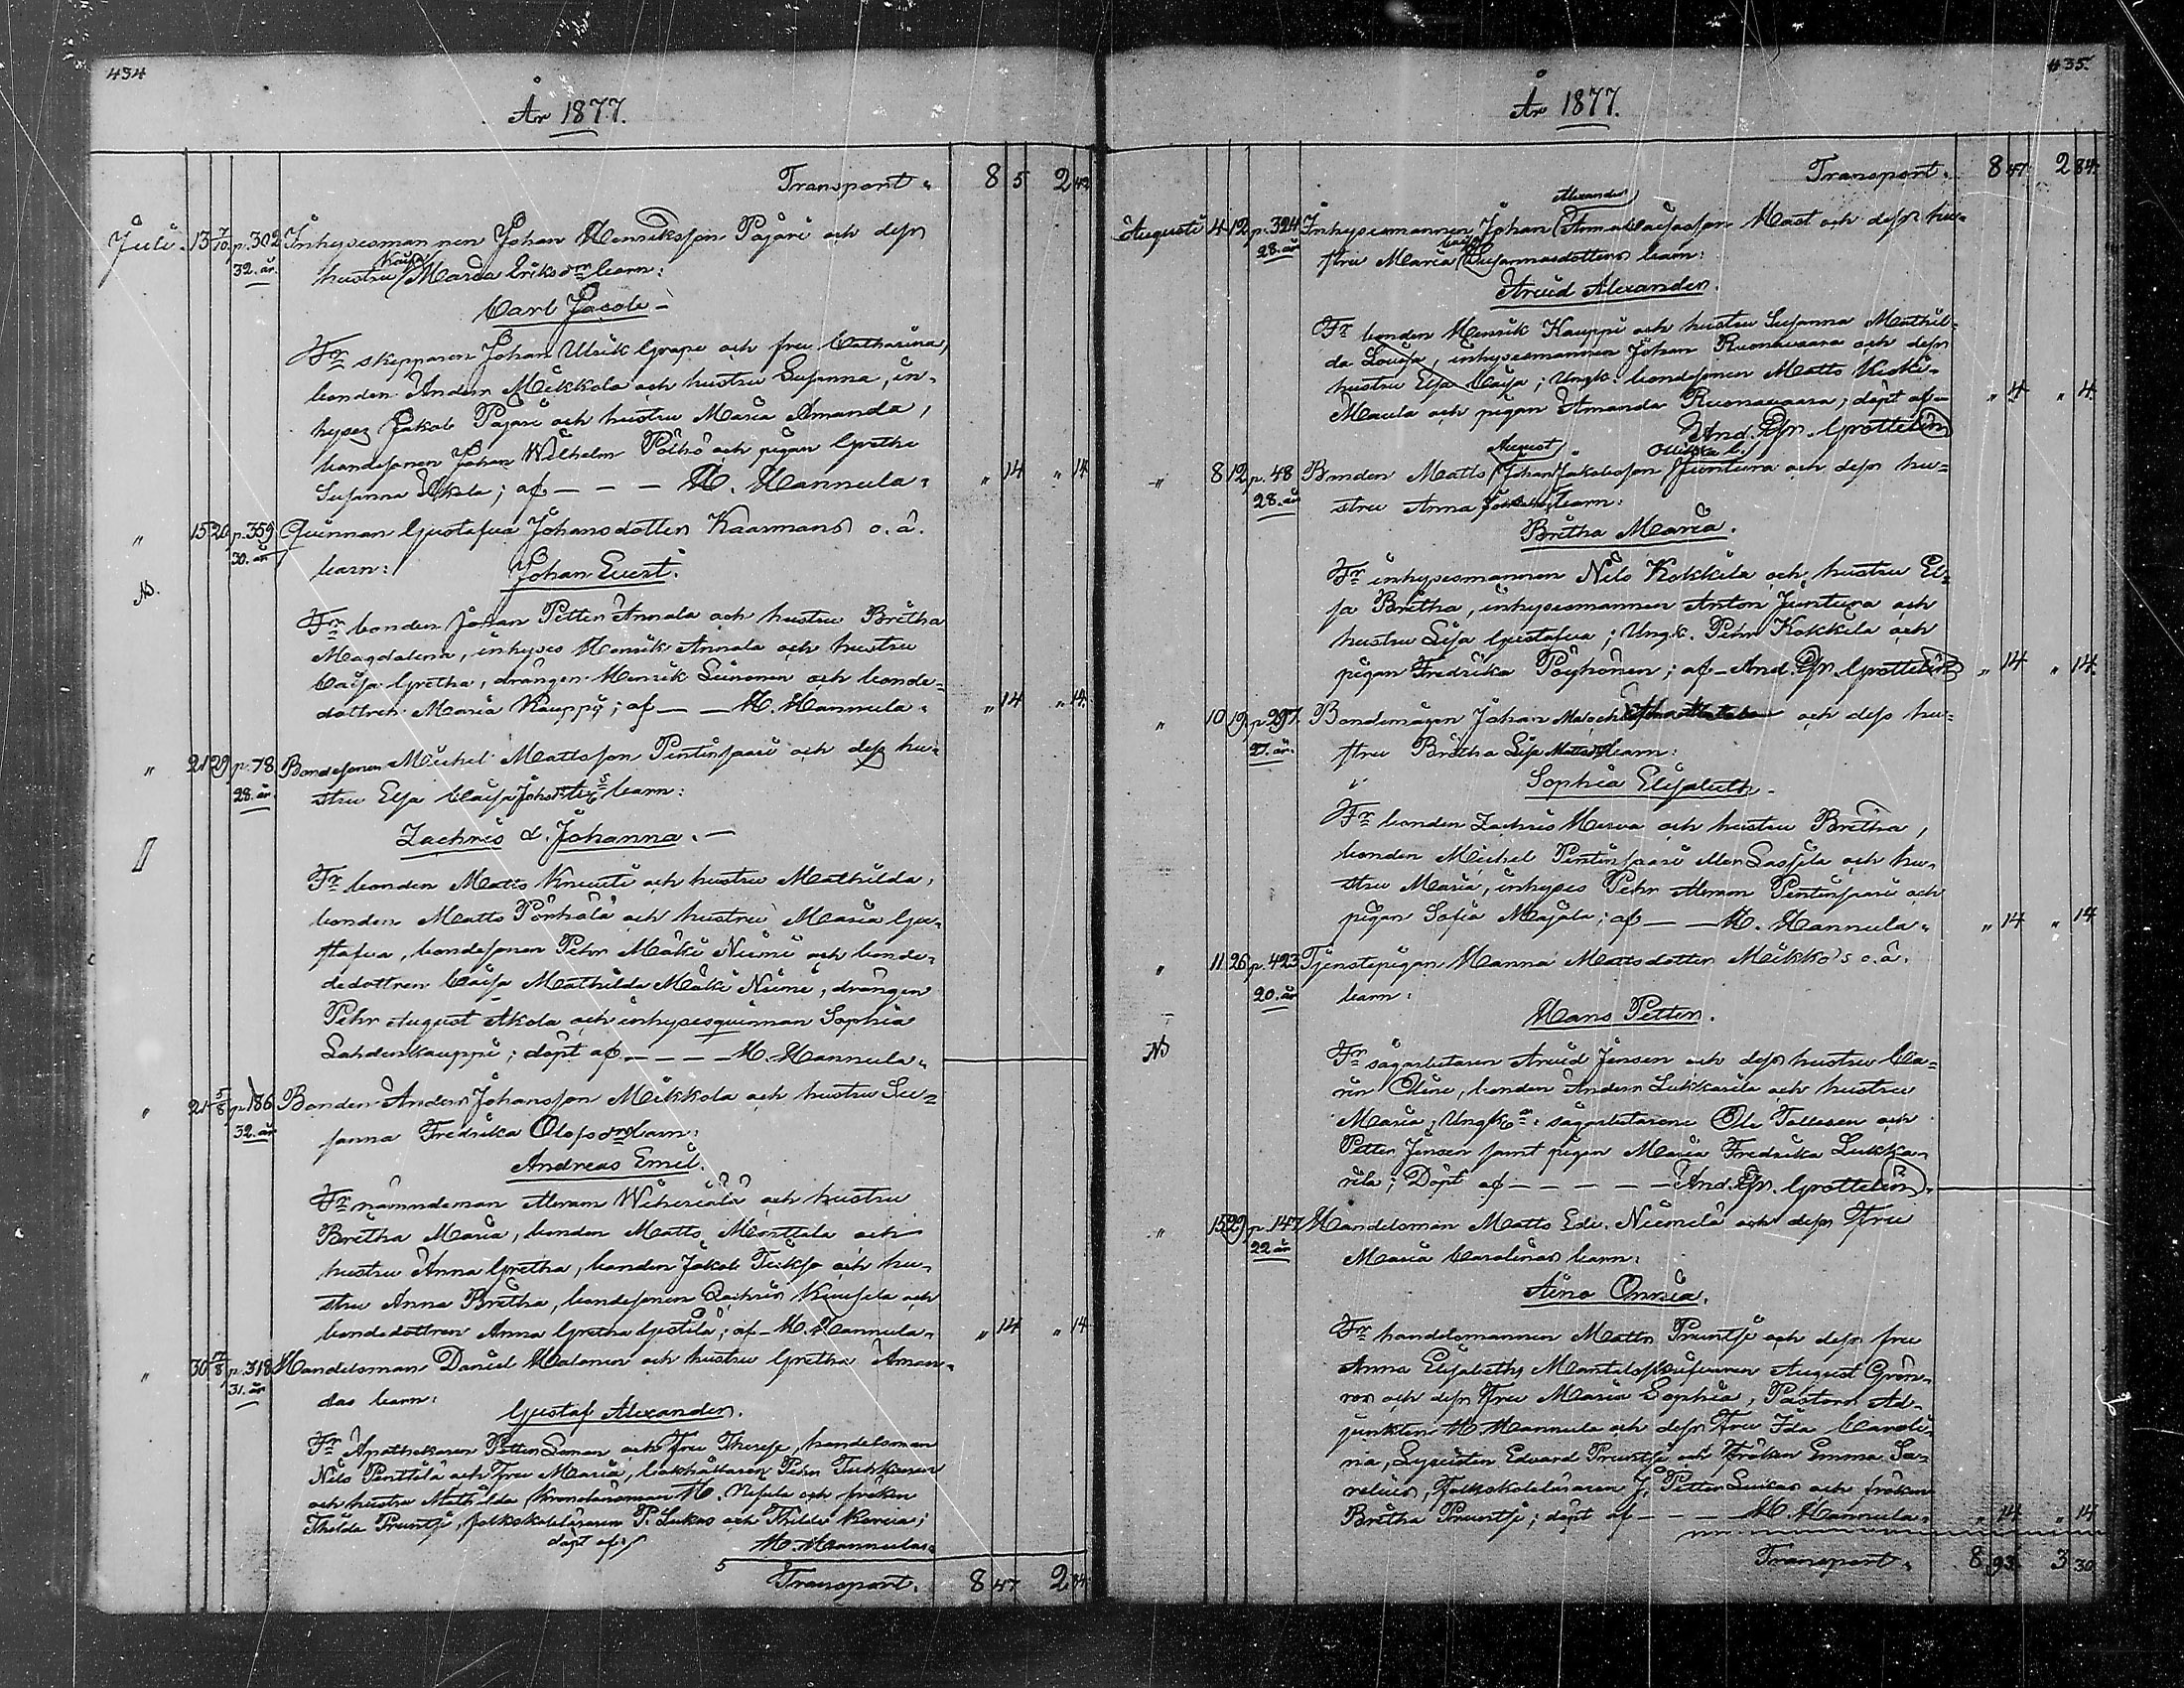 434
År 1877.
Transport. 8 5 2 42
Juli. 13 7/10 p. 302 Inhysesmannen Johan Henriksson Pajari och dess
32. år. hustru Kaisa Maria Eriksdrs barn:
Carl Jacob
Fr skepparen Johan Ulrik Grape och fru Catharina,
bonden Anders Mikkola och hustru Susanna, in-
hyses Jakob Pajari och hustru Maria Amanda,
bondesonen Johan Wilhelm och pigan Gretha
Susanna; af — — — H. Hannula. " 14 " 14
" 15 20 p. 359 Quinnan Gustafva Johansdotter Kaarmans o. ä.
30. år barn: Johan Evert.
Fr bonden Johan Petter Annala och hustru Britha
Magdalena, inhyses Henrik Annala och hustru
Caisa Gretha, drängen Henrik Leinonen och bonde-
dottren Maria Kauppi; af — — H. Hannula. " 14 " 14.
" 21 29 p. 78 Bondesonen Michel Mattsson Pirtinsaari och dess hu-
28. år. stru Elsa Caisa Johsdtrs barn:
Zachris & Johanna. —
Fr bonden Matts Knuuti och hustru Mathilda,
bonden Matts Pörhölä och hustru Maria Gu-
stafva, bondesonen Pehr Mäki Niemi och bonde-
dedottren Caisa Mathilda Mäki Niemi, drängen
Pehr August Akola och inhysesquinnan Sophia
Lahdenkauppi; döpt af — — — — H. Hannula.
" 21 5/8 p. 186 Bonden Anders Johansson Mikkola och hustru Su-
32. år sanna Fredrika Olofsdrs barn:
Andreas Emil.
Fr nämndeman Abram Wiheriälä och hustru
Britha Maria, bonden Matts Marttala och
hustru Anna Gretha, bonden Jakob och hu-
stru Anna Britha, bondesonen Zachris Kuusela och
bondedottren Anna Gretha; af — H. Hannula. " 14 " 14
" 30 7/8 p. 318 Handelsman Daniel Halonen och hustru Gretha Aman-
31. år das barn:
Gustaf Alexander.
Fr Apothekaren Petter Soman och Fru Therese, handelsman
Nils Penttilä och Fru Maria, bokhållaren Pehr
och hustru Mathilda, Kronolänsman H. och fröken
Thilda Pruntsi, folkskoleläraren P. Lukas och Thilda;
döpt af H. Hannula.
5 Transport. 8 47 2 84.
435.
År 1877.
Transport. 8 47 2 84.
Augusti 4 12 p. 324 Inhysesmannen Johan Alexander Anna Caisasson Mast och dess hu-
28. år stru Maria Caisa Susannasdotters barn:
Arvid Alexander.
Fr bonden Henrik Kauppi och hustru Susanna Mathil-
da Lovisa, inhysesmannen Johan Ruonavaara och dess
hustru Elsa Caisa; Ungk: bondesonen Matts Keski-
Maula och pigan Amanda Ruonavaara; döpt af — " 4 " 4.
And. Efr. Grotteliin
" 8 12 p. 48 Bonden Matts August Johan Jakobsson Juntura och dess hu-
28. år stru Anna barn:
Britha Maria.
Fr inhysesmannen Nils Kokkila och hustru El-
sa Britha, inhysesmannen Anton Juntura och
hustru Lisa Gustafva; Ungk. Pehr Kokkila och
pigan Fredrika Pöyhönen; af — And. Efr. Grotteliin " 14 " 14.
" 10 19 p. 297. Bondemågen Johan och dess hu-
27. år. stru Britha Lisa Mattsdrs barn:
Sophia Elisabeth.
Fr bonden Zachris Harva och hustru Britha,
bonden Michel Pirtinsaari eller Sassila och hu-
stru Maria, inhyses Pehr Abram Pirtinsaari och
pigan Sofia Majala; af — — H. Hannula. " 14 " 14
" 11 26 p. 423 Tjenstepigan Hanna Mattsdotter Mikko's o. ä.
20. år barn:
Hans Petter.
Fr sågarbetaren Arvid Jensen och dess hustru Ca-
rin Oline, bonden Anders Lukkarila och hustru
Maria; Ungkr: sågarbetarene Ole Tollesen och
Petter Jensen samt pigan Maria Fredrika Lukka-
rila; Döpt af — — — — — And. Efr. Grotteliin.
" 15 29 p. 147 Handelsman Matts Edv. Niemelä och dess Fru
22 år Maria Carolinas barn:
Aino Onnia.
Fr handelsmannen Matts Pruntsi och dess fru
Anna Elisabeth, Mantalsskrifvaren August Grön-
ros och dess Fru Maria Sophia, Pastors Ad-
junkten H. Hannula och dess Fru Ida Caroli-
na, Lyceisten Edvard Pruntsi och Fröken Emma Sa-
relius, Folkskoleläraren J. Petter Luikas och fröken
Britha Pruntsi; döpt af — — — H. Hannula. " 14 " 14
Transport. 8 93. 3 30